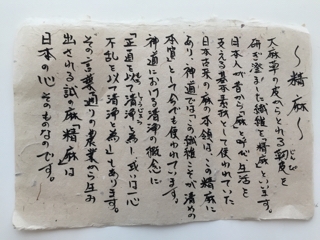 〜精麻〜
大麻草の皮からとれる靭皮を
研ぎ澄ました繊維を精麻といいます。
日本人が昔から「麻」と呼び生活を
支える基本素材として使われていた
日本古来の麻の本領は、この精麻に
あり、神道では「この繊維こそが清めの
本質」として今でも使われています。
神道における清浄の概念に
「正直を以て清浄と為し、或いは一心
不乱を以て清浄と為」もあります。
その言葉通りの農業から生み
出される誠の麻、精麻は
日本の心そのものなのです。